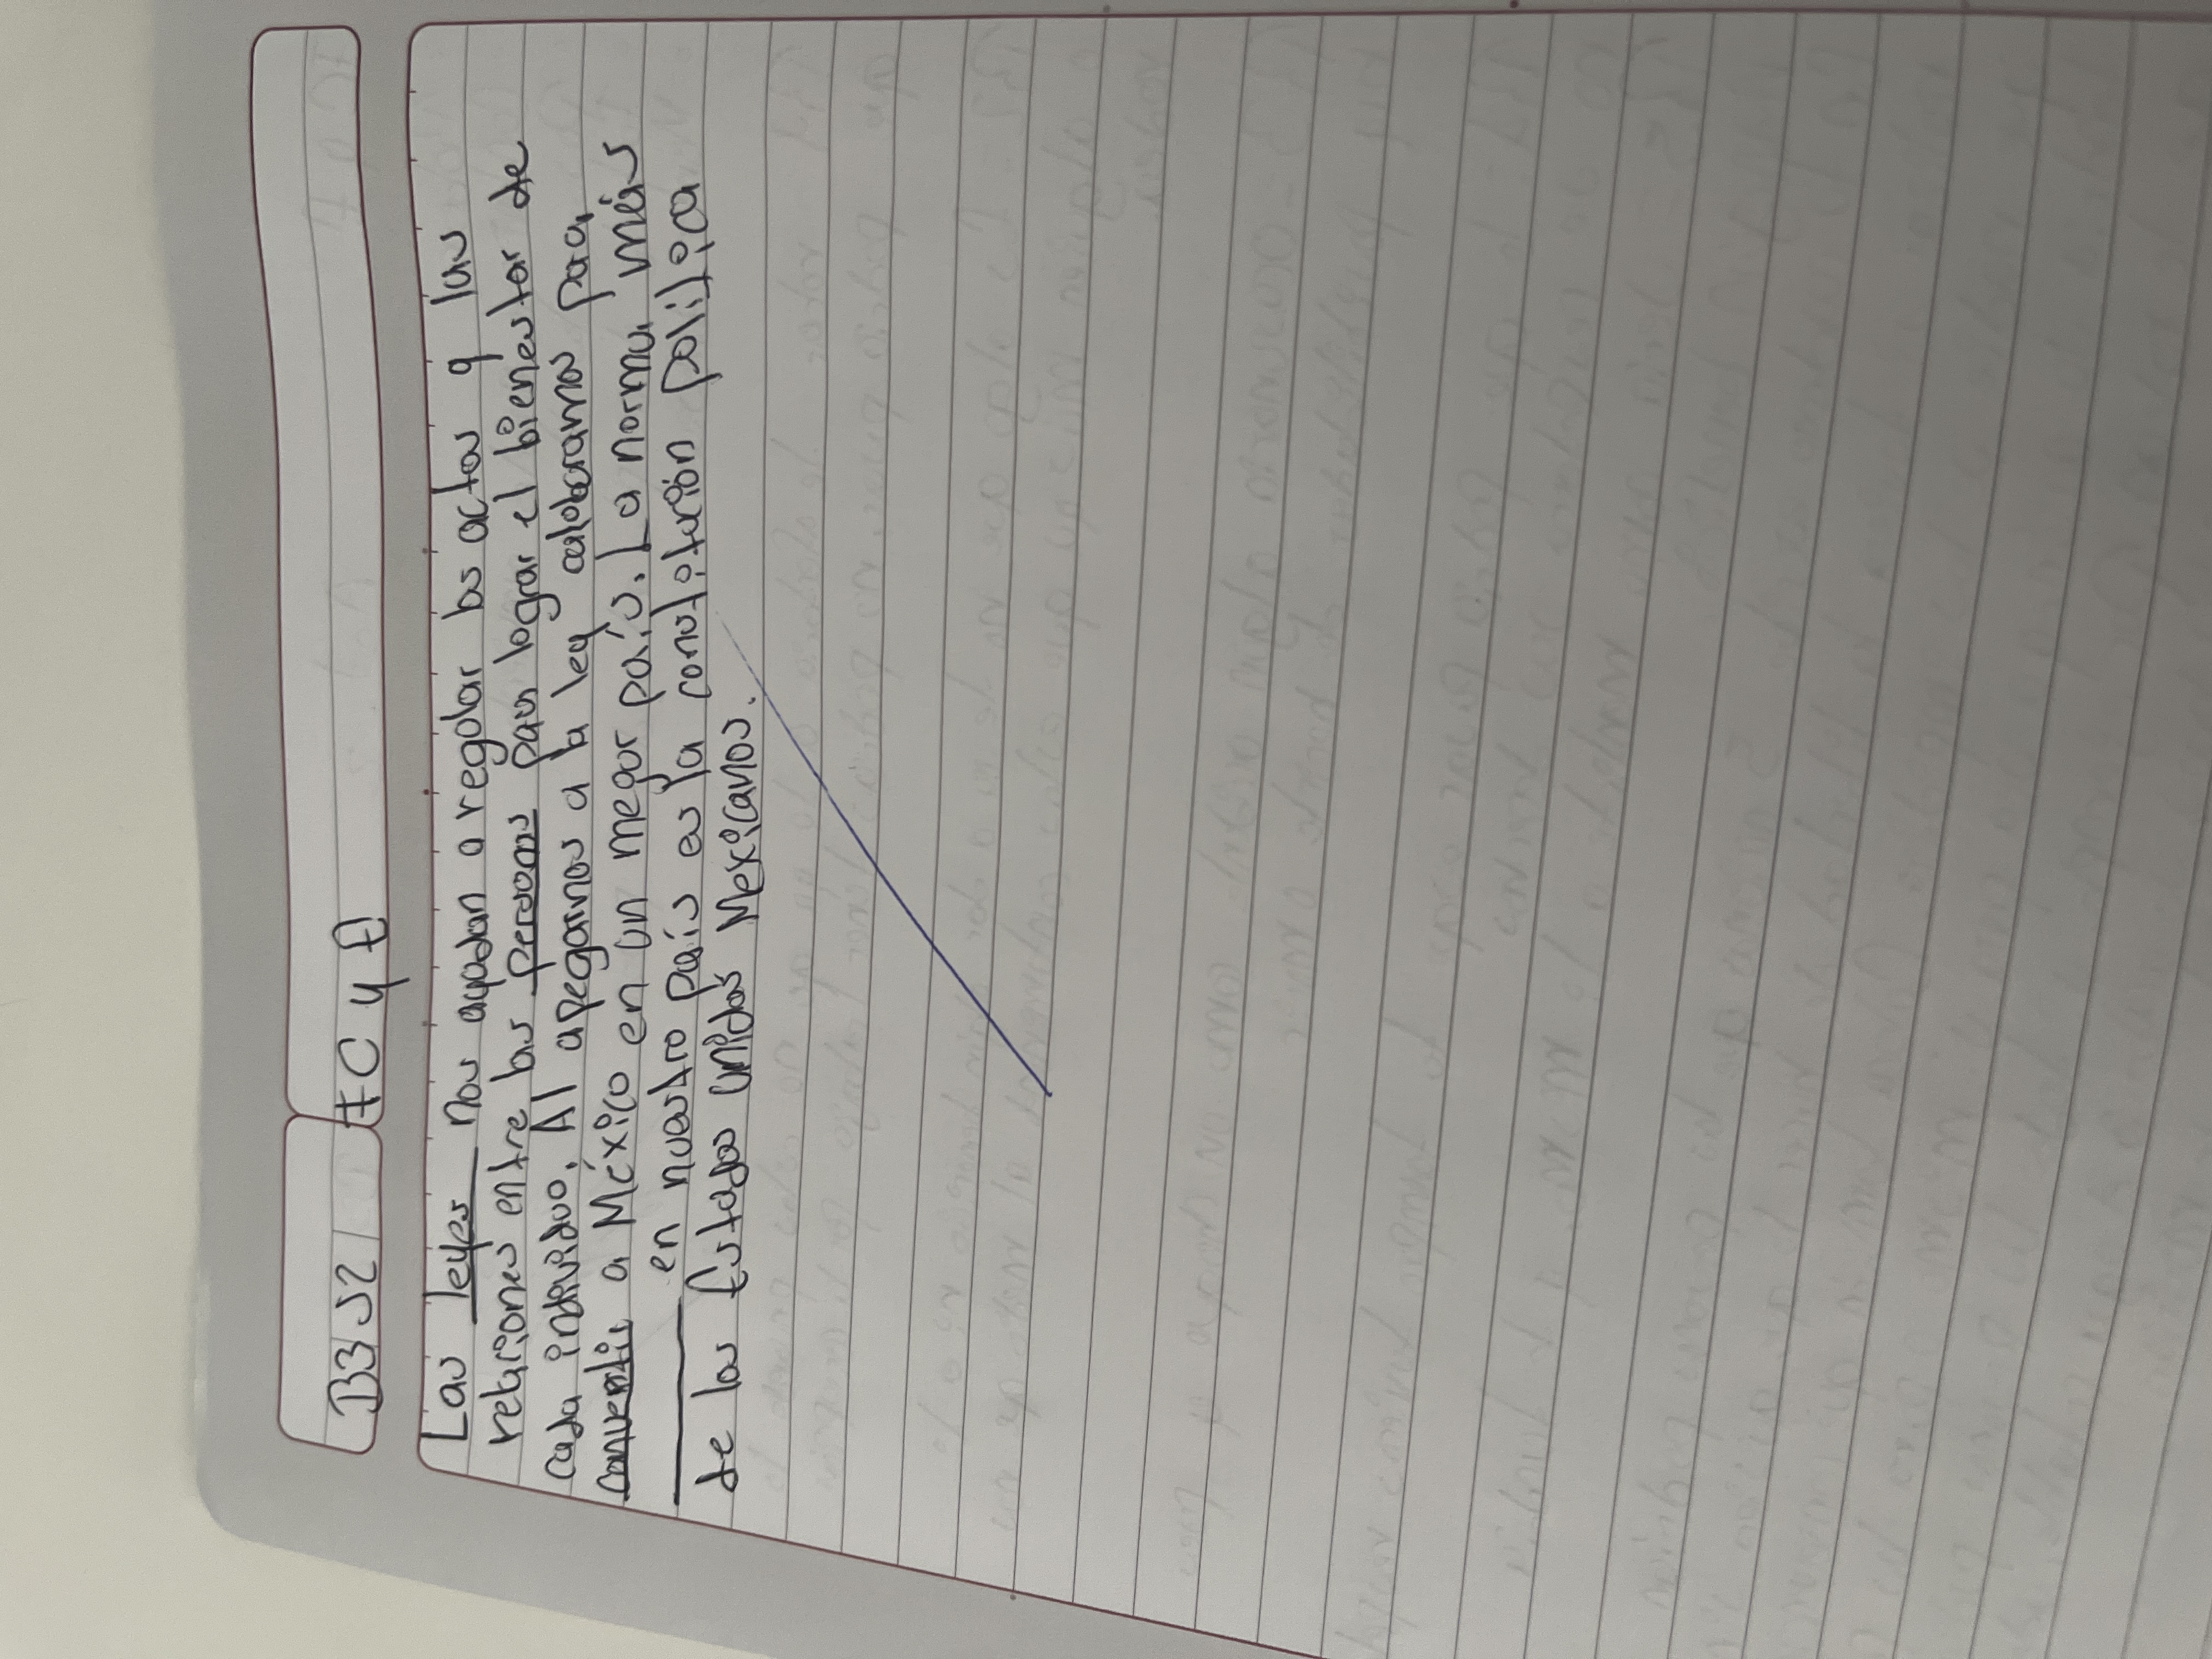 B3 S2
FC y A
Las leyes nos ayudan a regular los actos y las
relaciones entre las personas para lograr el bienestar de
cada individuo. Al apegarnos a la ley coloboramos para
convertir a México en un megor país. La norma más
______ en nuestro país es la constotución política
de los Estados unidos Mexicanos.